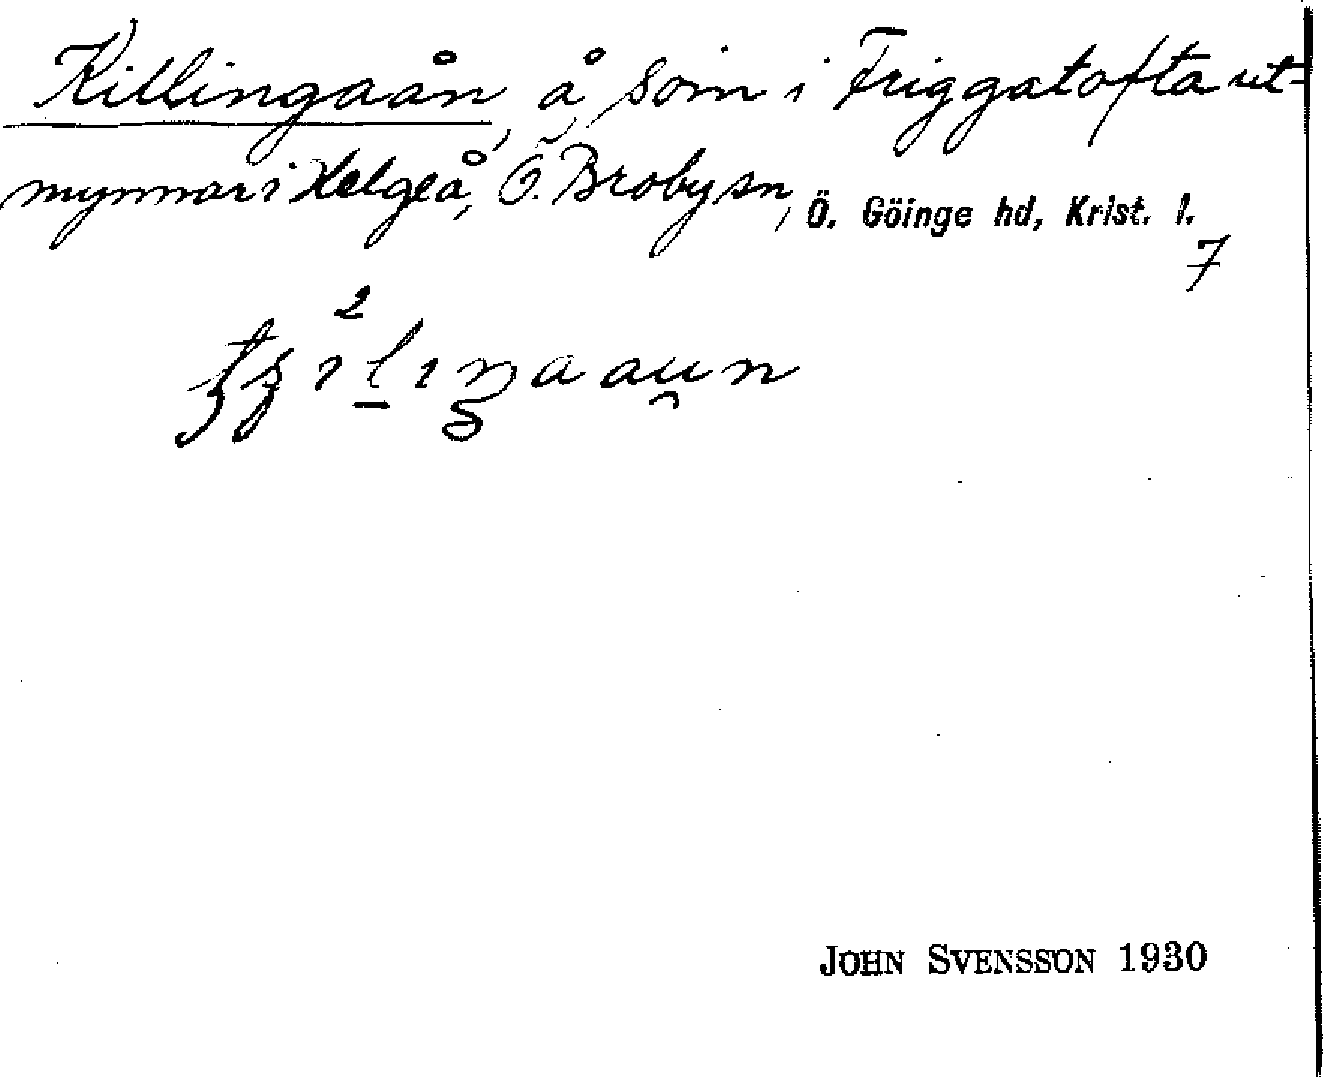 Killingaån, å, som i Friggatofta ut-
mynnar i Helgeå, Ö. Broby sn, Ö. Göinge hd, Krist. l.
7
JOHN SVENSSON 1930